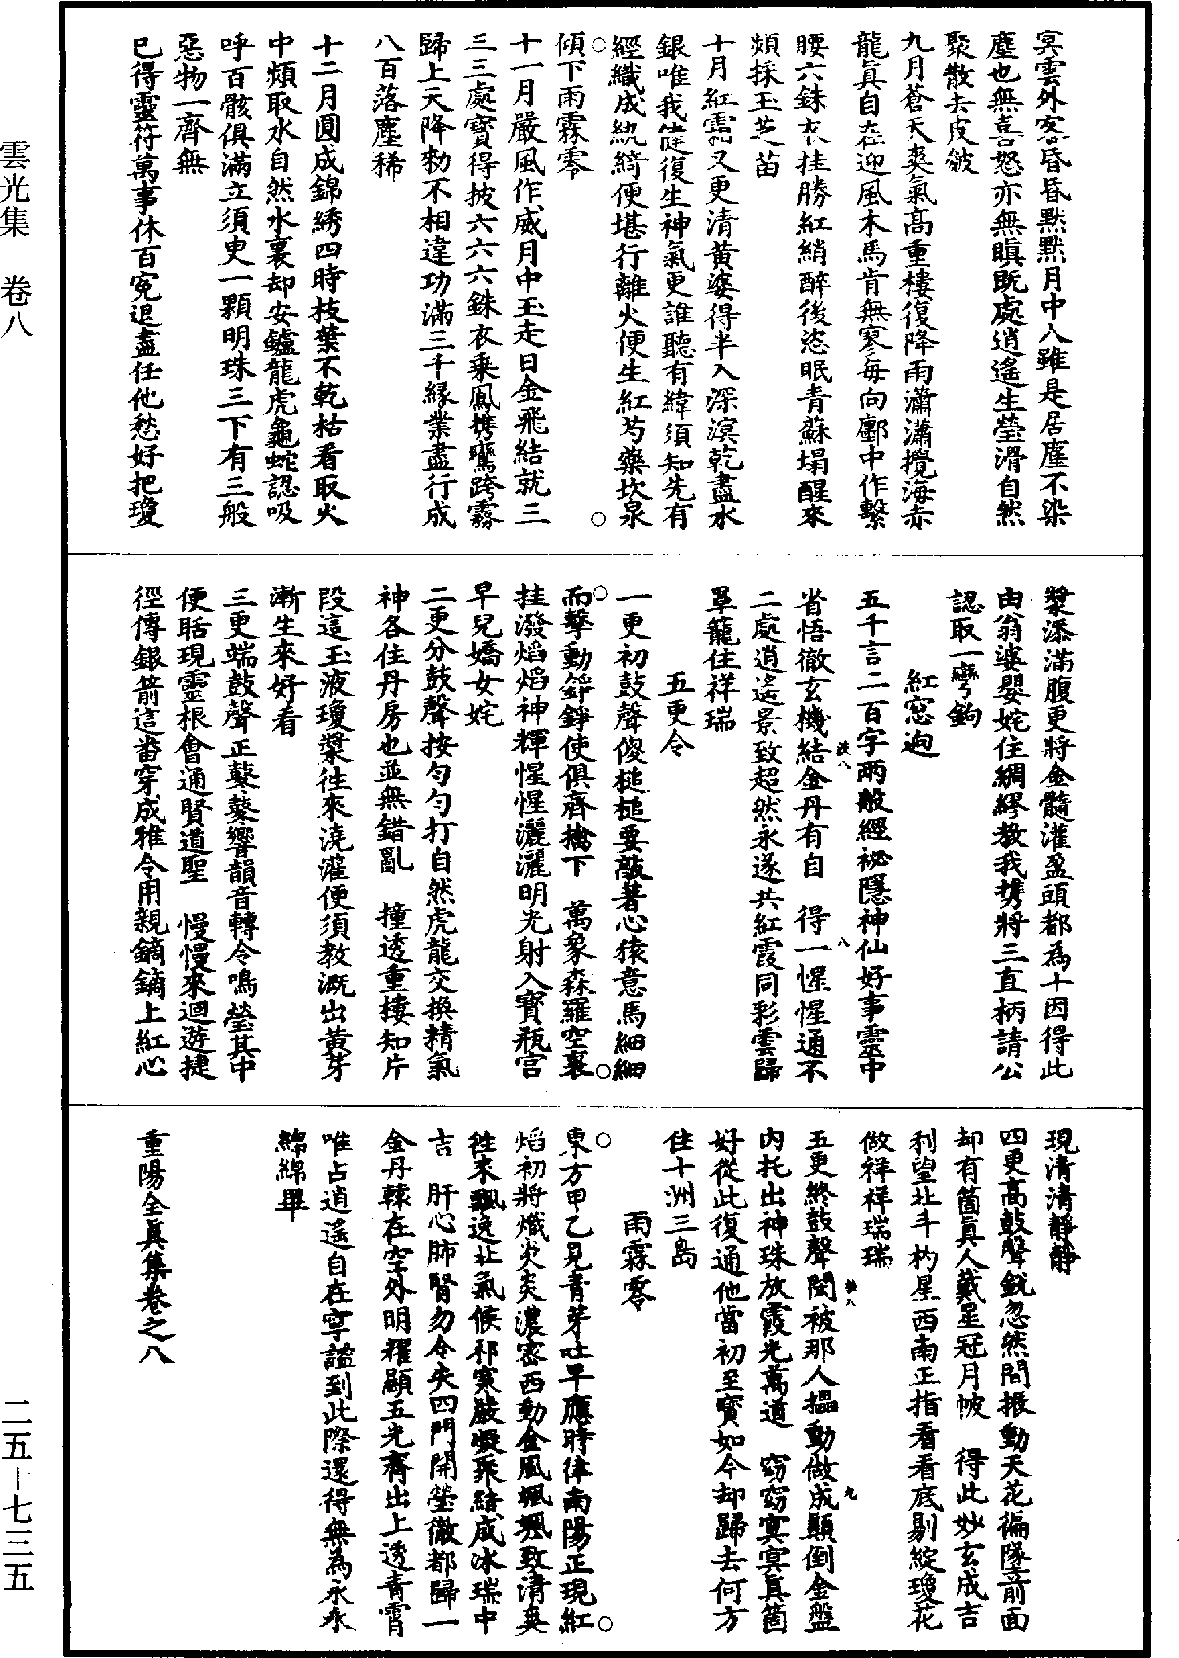 冥雲外客昏昏默默月中人雖是居塵不染
塵也無喜怒亦無瞋既處逍遙生瑩滑自然
聚散去皮皴
九月蒼天爽氣高重樓復降雨瀟瀟攪海赤
龍真自在迎風木馬肯無寥每向酆中作繫
腰六銖衣挂勝紅綃醉後恣眠青蘇塌醒來
頻採玉芝苗
十月紅霜又更清黃婆得半入深溟乾盡水
銀唯我健復生神氣更誰聽有緯須知先有
經織成紈綺便堪行離火便生紅芍藥坎泉
傾下雨霖零
十一月嚴風作威月中玉走日金飛結就三
三三處寶得披六六六銖衣乘鳳攜鸞跨霧
歸上天降勑不相違功滿三千緣業盡行成
八百落塵稀
十二月圓成錦綉四時枝葉不乾枯看取火
中頻取水自然水裏却安鑪龍虎龜蛇認吸
呼百骸俱滿立須臾一顆明珠三下有三般
惡物一齊無
已得靈符萬事休百寃退盡任他愁好把瓊
漿添滿腹更將金髓灌盈頭都為十因得此
由翁婆嬰姹住綢繆教我携將三直柄請公
認取一彎鉤
紅窓迥
五千言二百字兩般經祕隱神仙好事靈中
省悟徹玄機結金丹有自　得一惺惺通不
二處逍遙景致超然永遂共紅霞同彩雲歸
罩籠住祥瑞
五更令
一更初鼓聲傻槌槌要敲著心猿意馬細細
而擊動錚錚使俱齊擒下　萬象森羅空裏
挂潑焰焰神輝惺惺灑灑明光射入寶瓶宫
早兒嬌女姹
二更分鼓聲按勻勻打自然虎龍交換精氣
神各住丹房也並無錯亂　撞透重樓知片
段這玉液瓊漿往來澆灌便須教溉出黃芽
漸生來好看
三更端鼓聲正鼕鼕響韻音轉令鳴瑩其中
便聒現靈根會通賢道聖　慢慢來迴遊捷
徑傳銀箭這畨穿成雅令用親鏑鏑上紅心
現清清靜靜
四更高鼓聲銳忽然間振動天花徧墜前面
却有箇真人戴星冠月帔　得此妙玄成吉
利望北斗杓星西南正指看看底剔綻瓊花
做祥祥瑞瑞
五更終鼓聲閙被那人搵動做成顛倒金盤
内托出神珠放霞光萬道　窈窈冥冥真箇
好從此復通他當初至寶如今却歸去何方
住十洲三島
雨霖零
東方甲乙見青芽吐早應時律南陽正現紅
焰初將熾炎炎濃密西動金風颯颯致清爽
往來飄逸北氣候祁寒嚴凝聚結成冰瑞中
吉　肝心肺腎勿令失四門開瑩徹都歸一
金丹輥在空外明耀顯五光齊出上透青霄
唯占逍遙自在寧謐到此際還得無為永永
綿綿畢
重陽全真集卷之八
雲光集　卷八
二五－七三五